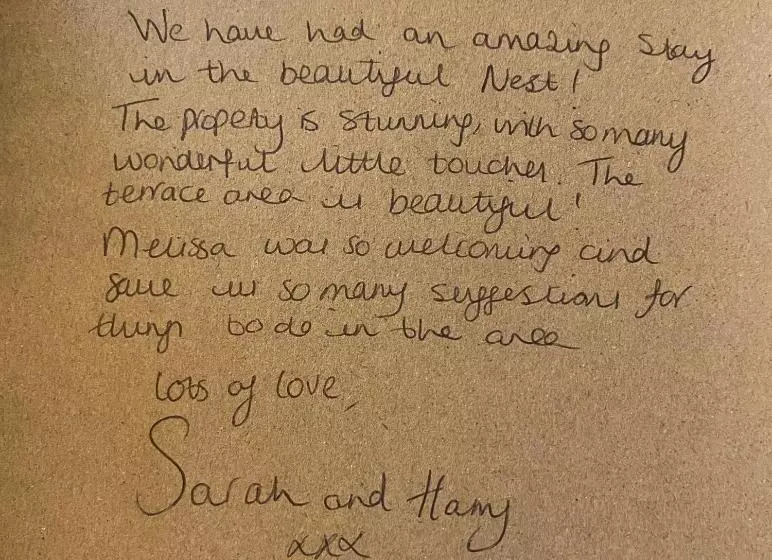 We have had an amazing stay
in the beautiful Nest!
The property is stunning, with so many
wonderful little touches. The
terrace area is beautiful!
Melissa was so welcoming and
gave us so many suggestions for
things to do in the area
lots of love,
Sarah and Harry
xxx